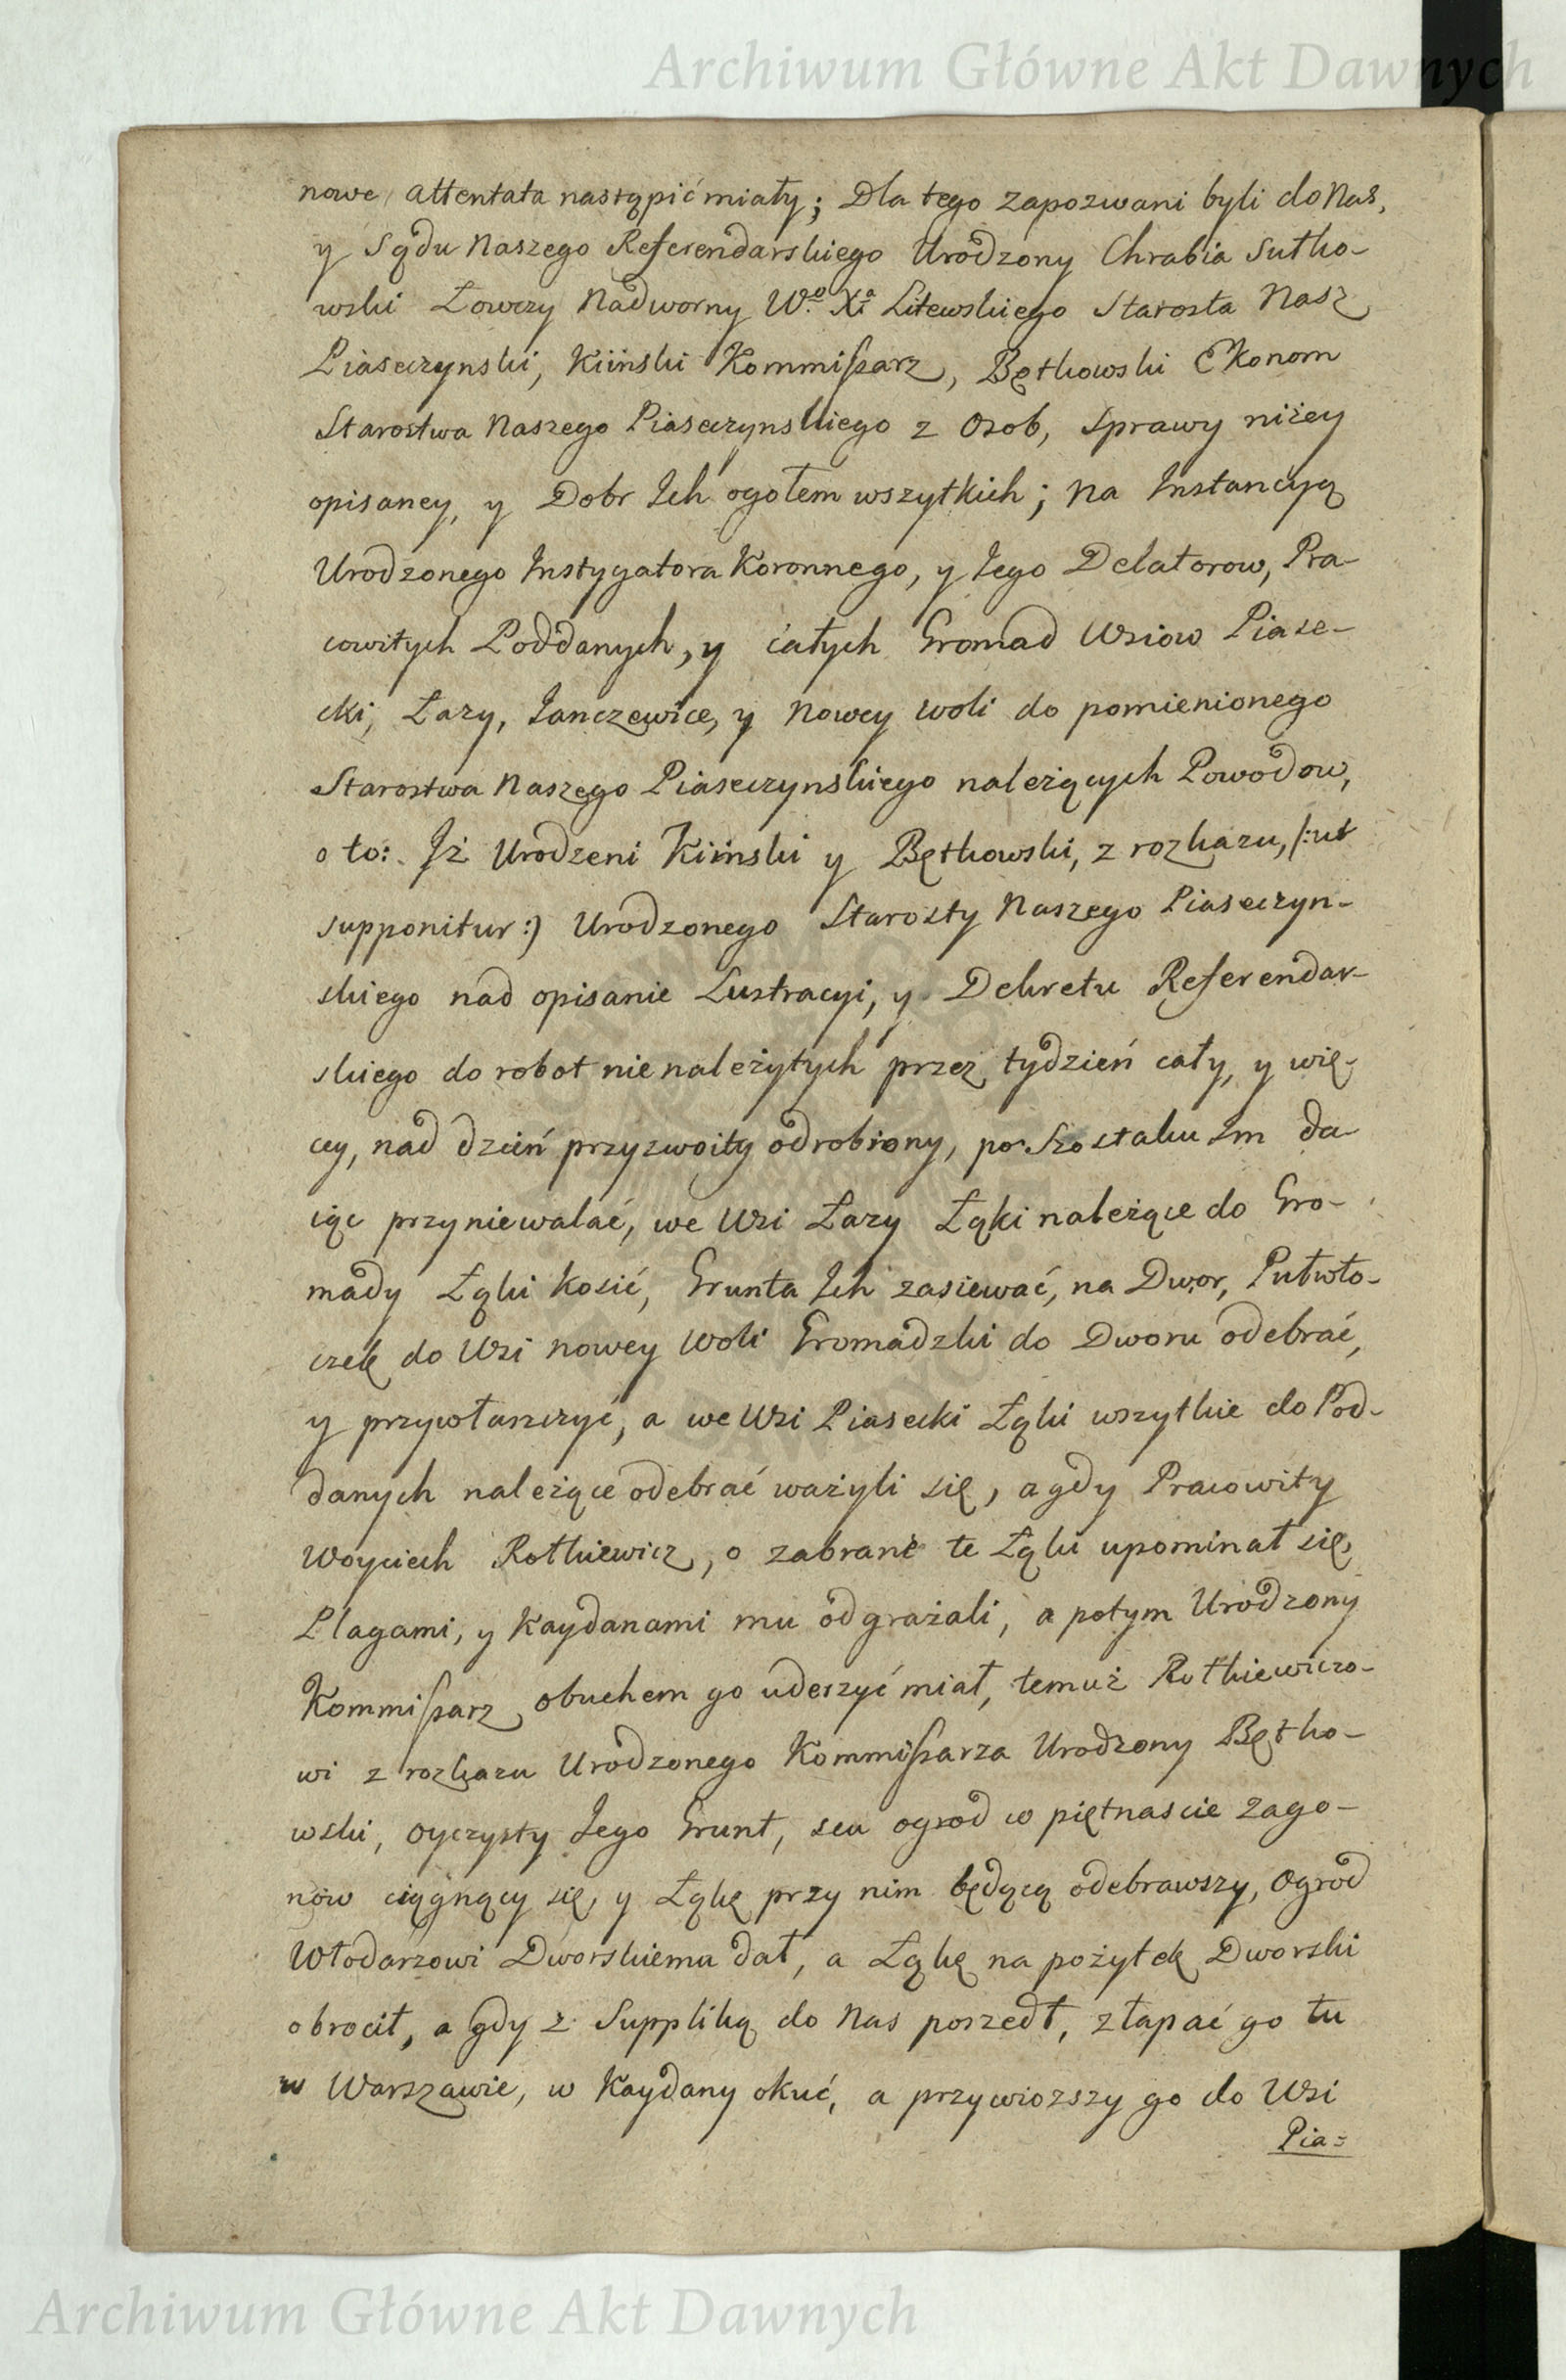 Archiwum Główne Akt Dawnych
nowe attentata nastąpić miały; Dla tego zapozwani byli do Nas,
y Sądu Naszego Referendarskiego Urodzony Chrabia Sułko-
wski Łowczy Nadworny Wo Xa Litewskiego Starosta Nasz
Piaseczynski, Kiiński Kommissarz, Bętkowski Ekonom
Starostwa Naszego Piaseczynskiego z Osob, Sprawy niżey
opisaney, y Dobr Ich ogołem wszytkich; Na Instancyą
Urodzonego Instygatora Koronnego, y Iego Delatorow, Pra-
cowitych Poddanych, y całych Gromad Wsiow Piase-
cki, Łazy, Ianczewice, y Nowey Woli do pomienionego
Starostwa Naszego Piaseczynskiego należących Powodow,
o to: Iż Urodzeni Kiiński y Bętkowski, z rozkazu, /:ut
supponitur:) Urodzonego Starosty Naszego Piaseczyn-
skiego nad opisanie Lustracyi, y Dekretu Referendar-
skiego do robot nienależytych przez tydzień cały, y wię-
cey, nad dzień przyzwoity odrobiony, po Szostaku Im da-
iąc przyniewalać, we Wsi Łazy Łąki należące do Gro-
mady Łąki kosić, Grunta Ich zasiewać, na Dwor, Pułwło-
czek do Wsi nowey Woli Gromadzki do Dworu odebrać,
y przywłaszczyć, a we Wsi Piasecki Łąki wszytkie do Pod-
danych należące odebrać ważyli się, a gdy Pracowity
Woyciech Rotkiewicz, o zabrane te Łąki upominał się,
Plagami, y Kaydanami mu odgrażali, a potym Urodzony
Kommissarz obuchem go uderzyć miał, temuż Rotkiewiczo-
wi z rozkazu Urodzonego Kommissarza Urodzony Bętko-
wski, oyczysty Iego Grunt, seu ogrod w piętnascie zago-
nów ciągnący się, y Łąkę przy nim będącą odebrawszy, Ogrod
Włodarzowi Dworskiemu dał, a Łąkę na pożytek Dworski
obrocił, a gdy z Suppliką do Nas poszedł, złapać go tu
w Warszawie, w Kaydany okuć, a przywiozszy go do Wsi
Pia=
Archiwum Główne Akt Dawnych